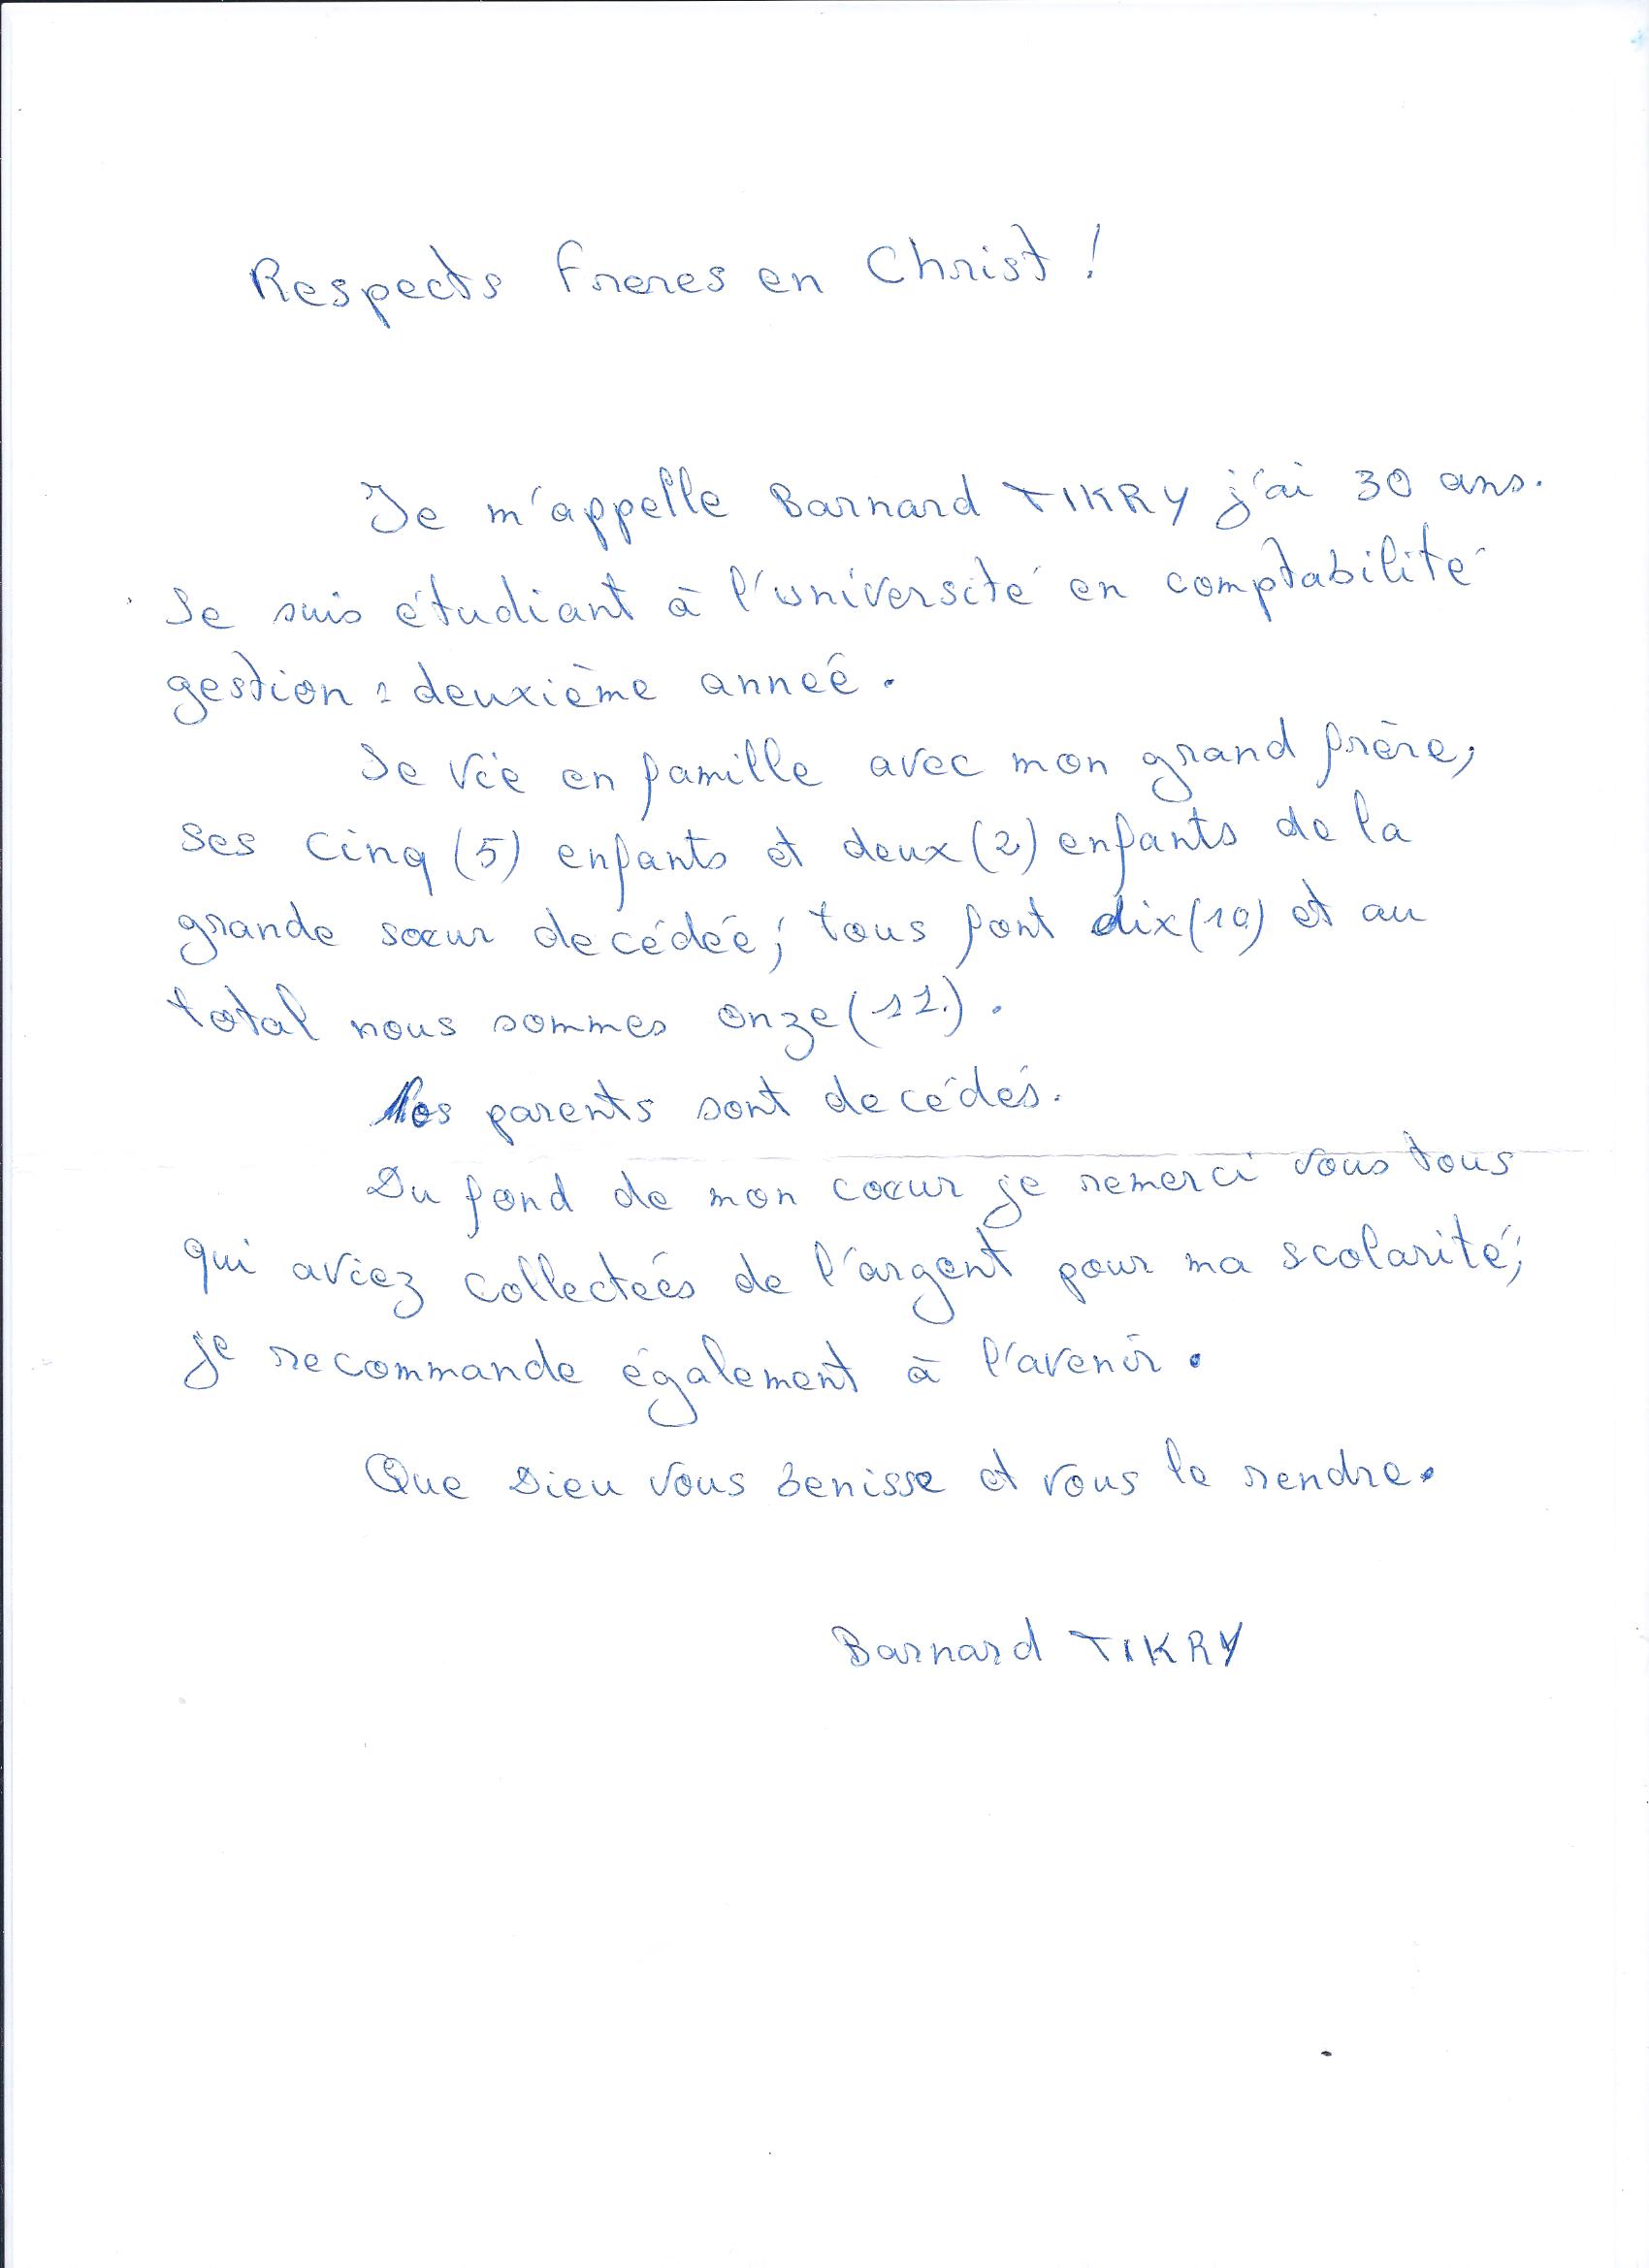 Respects Freres en Christ !
Je m'appelle Barnard TIKRY j'ai 30 ans.
Je suis étudiant à l'université en comptabilité
gestion : deuxième année.
Je vie en famille avec mon grand frère,
ses cinq (5) enfants et deux (2) enfants de la
grande sœur decédée ; tous font dix (10) et au
total nous sommes onze (11).
Nos parents sont decédés.
Du fond de mon cœur je remerci vous tous
qui aviez collectées de l'argent pour ma scolarité ;
je recommande également à l'avenir.
Que Dieu vous benisse et vous le rendre.
Barnard TIKRY